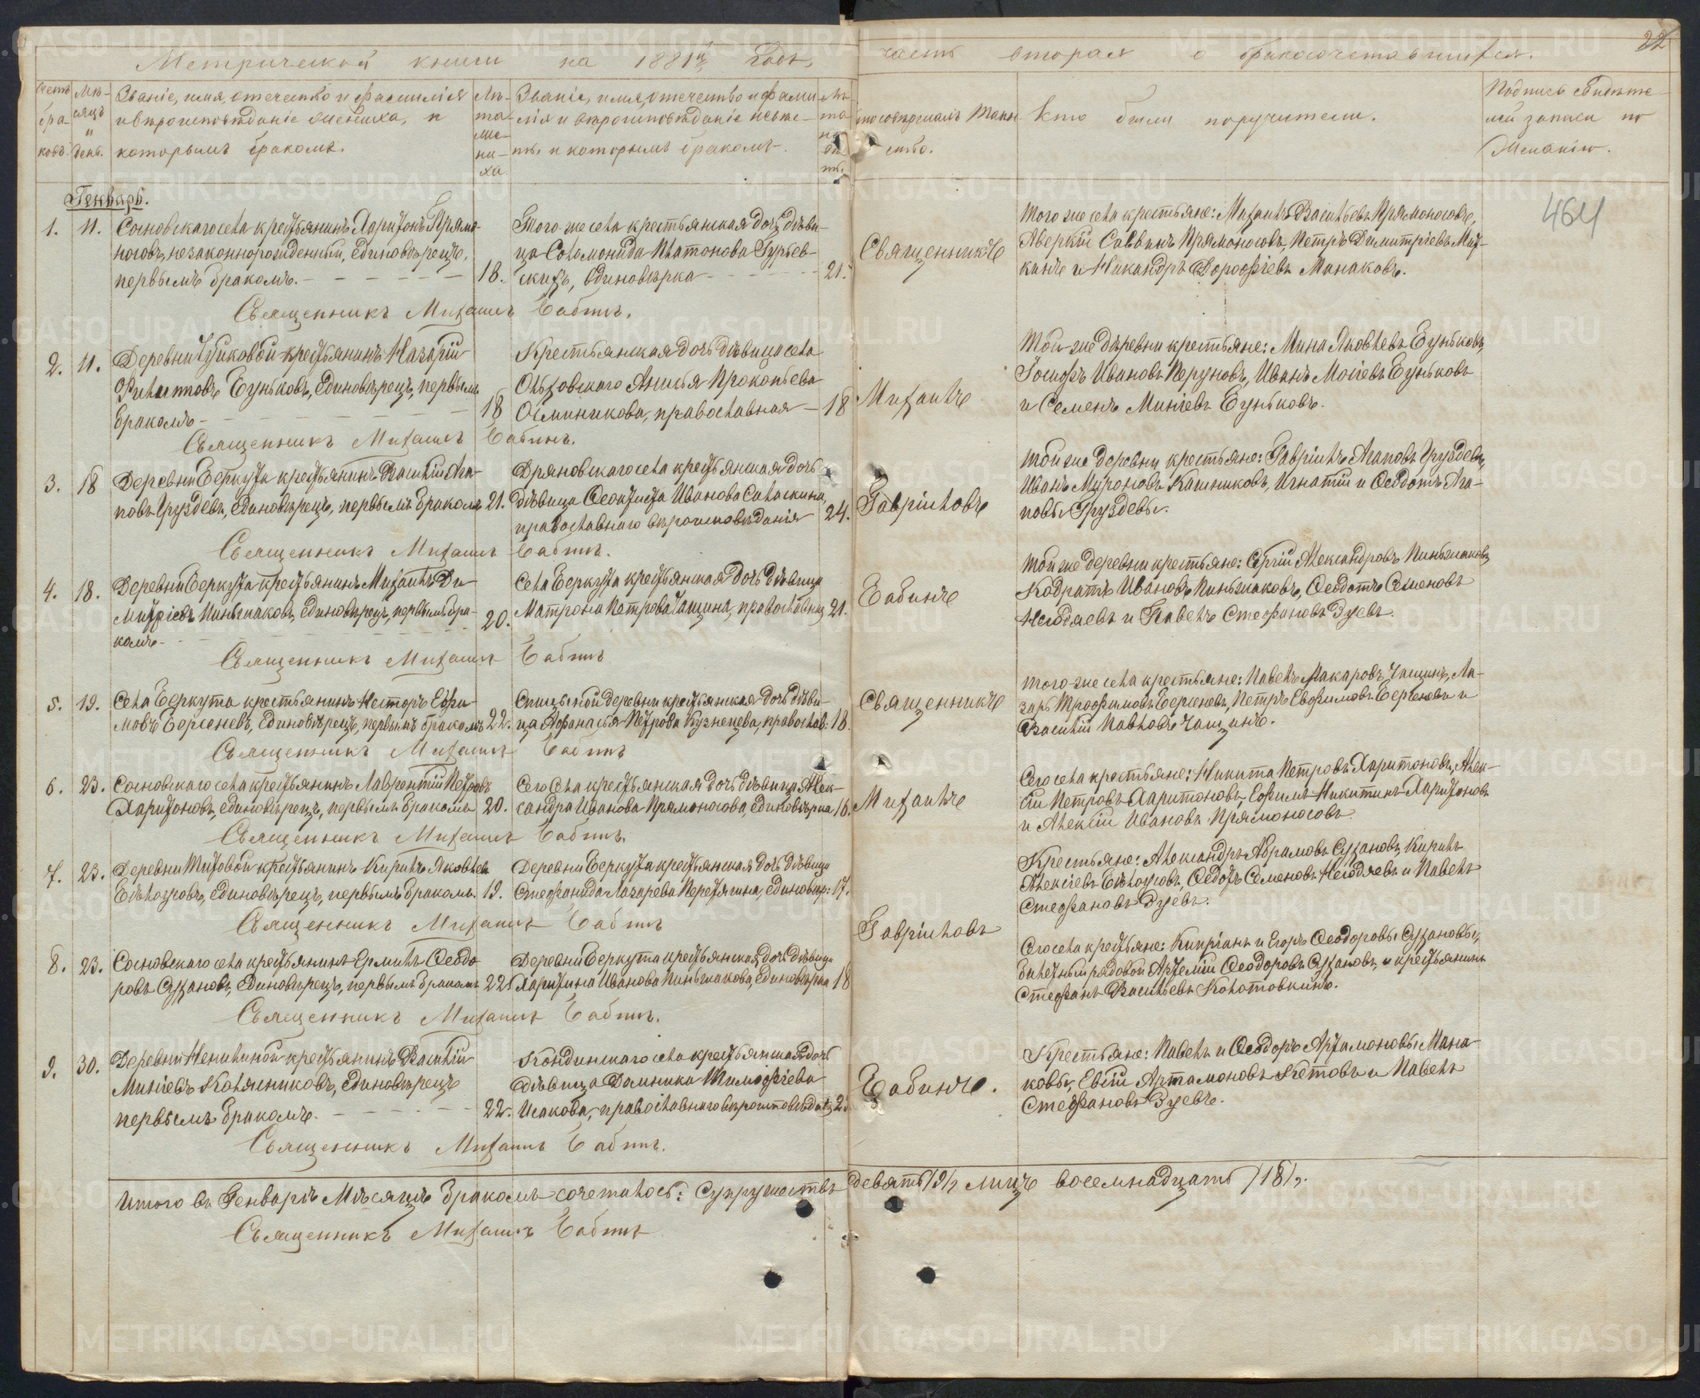 Метрической книги на 1881й годъ,
часть вторая о бракосочетавшихся.
22
Счетъ браковъ.
Мѣсяцъ и день.
Званіе, имя, отечество и фамилія
и вѣроисповѣданіе жениха, и
которымъ бракомъ.
Лѣта жениха.
Званіе, имя, отечество и фами-
лія и вѣроисповѣданіе невѣс-
ты и которымъ бракомъ.
Кто совершалъ Таин
ство.
Кто были поручители.
Подпись свидѣте-
лей записи по
желанію.
464
Генварь.
1. 11. Сосновскаго села крестьянинъ Харитонъ Прямо-
носовъ, незаконнорожденный, единовѣрецъ,
первымъ бракомъ. 18.
Того же села крестьянская дочь дѣви-
ца Соломонида Платонова Гурьев-
скихъ, единовѣрка 21.
Священникъ
Того же села крестьяне: Михаилъ Васильевъ Прямоносовъ,
Аверкій Саввинъ Прямоносовъ, Петръ Димитріевъ
и Никандръ Дорофѣевъ Манаковъ.
Священникъ Михаилъ Бабинъ.
2. 11. Деревни Чупиковой крестьянинъ Назарій
Филатовъ Буньковъ, единовѣрецъ, первымъ
бракомъ 18
Крестьянская дочь дѣвица села
Ольховскаго Анисья Прокопьева
Осминикова, православная 18
Михаилъ
Той же деревни крестьяне: Мина Яковлевъ Буньковъ,
Іосифъ Ивановъ Перуновъ, Иванъ Моісеевъ Буньковъ
и Семенъ Миніевъ Буньковъ.
Священникъ Михаилъ Бабинъ.
3. 18 Деревни Беркута крестьянинъ Василій Ага-
повъ Груздевъ, единовѣрецъ, первымъ бракомъ 21.
Дряновскаго села крестьянская дочь
дѣвица Феоктиста Иванова Саласкина,
православнаго вѣроисповѣданія 24.
Гавріиловъ
Той же деревни крестьяне: Гавріилъ Агаповъ Груздевъ,
Иванъ Муроновъ Кашниковъ, Игнатій и Феодотъ Ага-
повы Груздевы.
Священникъ Михаилъ Бабинъ.
4. 18. Деревни Беркута крестьянинъ Михаилъ Ди-
митріевъ Пиньжаковъ, единовѣрецъ, первымъ бра-
комъ 20.
Села Беркута крестьянская дочь дѣвица
Матрона Петрова Чащина, православная 21.
Бабинъ
Той же деревни крестьяне: Сергій Александровъ Пиньжаковъ,
Кодратъ Ивановъ Пиньжаковъ, Феодотъ Семеновъ
Негодяевъ и Павелъ Стефановъ Зуевъ.
Священникъ Михаилъ Бабинъ
5. 19. Села Беркута крестьянинъ Несторъ Ефи-
мовъ Берсеневъ, единовѣрецъ, первымъ бракомъ 22.
Спицыной деревни крестьянская дочь дѣви-
ца Афанасья Петрова Кузнецова, православ. 18.
Священникъ
Того же села крестьяне: Павелъ Макаровъ Чащинъ, Ла-
зарь Трофимовъ Берсеневъ, Петръ Евфимовъ Берсеневъ и
Василій Павловъ Чащинъ.
Священникъ Михаилъ Бабинъ
6. 23. Сосновскаго села крестьянинъ Лаврентій Петровъ
Харитоновъ, единовѣрецъ, первымъ бракомъ 20.
Сего села крестьянская дочь дѣвица Алек-
сандра Иванова Прямоносова, единовѣрка 16.
Михаилъ
Сего села крестьяне: Никита Петровъ Харитоновъ, Алек-
сій Петровъ Харитоновъ, Ефимъ Никитинъ Харитоновъ
и Алексій Ивановъ Прямоносовъ
Священникъ Михаилъ Бабинъ.
7. 23. Деревни Титовой крестьянинъ Кирилъ Яковлевъ
Бѣлоусовъ, единовѣрецъ, первымъ бракомъ. 19.
Деревни Беркута крестьянская дочь дѣвица
Стефанида Лазарева Перетягина, единовѣр: 17.
Гавріиловъ
Крестьяне: Александръ Абрамовъ Сузановъ, Кирилъ
Алексіевъ Бѣлоусовъ, Федоръ Семеновъ Негодяевъ и Павелъ
Стефановъ Зуевъ.
Священникъ Михаилъ Бабинъ
8. 23. Сосновскаго села крестьянинъ Ермилъ Феодо-
ровъ Сузановъ, единовѣрецъ, первымъ бракомъ 22.
Деревни Беркута крестьянская дочь дѣвица
Харитина Иванова Пиньжакова, единовѣрка 18
Сего села крестьяне: Кипріанъ и Егоръ Феодоровы Сузановы,
билетный рядовой Артемій Феодоровъ Сузановъ, и крестьянинъ
Стефанъ Васильевъ Колотовкинъ.
Священникъ Михаилъ Бабинъ.
9. 30. Деревни крестьянинъ Василій
Миніевъ Котяшниковъ, единовѣрецъ
первымъ бракомъ. 22.
Кондинскаго села крестьянская дочь
дѣвица Домника Тимофіева
Исакова, православнаго вѣроисповѣдан.
Бабинъ.
Крестьяне: Павелъ и Феодоръ Артамоновы Мана-
ковы, Евсій Артамоновъ и Павелъ
Стефановъ Зуевъ.
Священникъ Михаилъ Бабинъ.
Итого въ Генварѣ мѣсяцѣ бракомъ сочеталось: супружествъ девять /9/, лицъ восемнадцать /18/.
Священникъ Михаилъ Бабинъ
METRIKI.GASO-URAL.RU